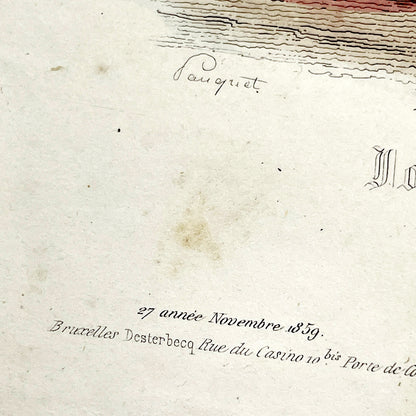 Pauquet.
No
27 année Novembre 1859.
Bruxelles Desterbecq Rue du Casino 10 bis Porte de Co